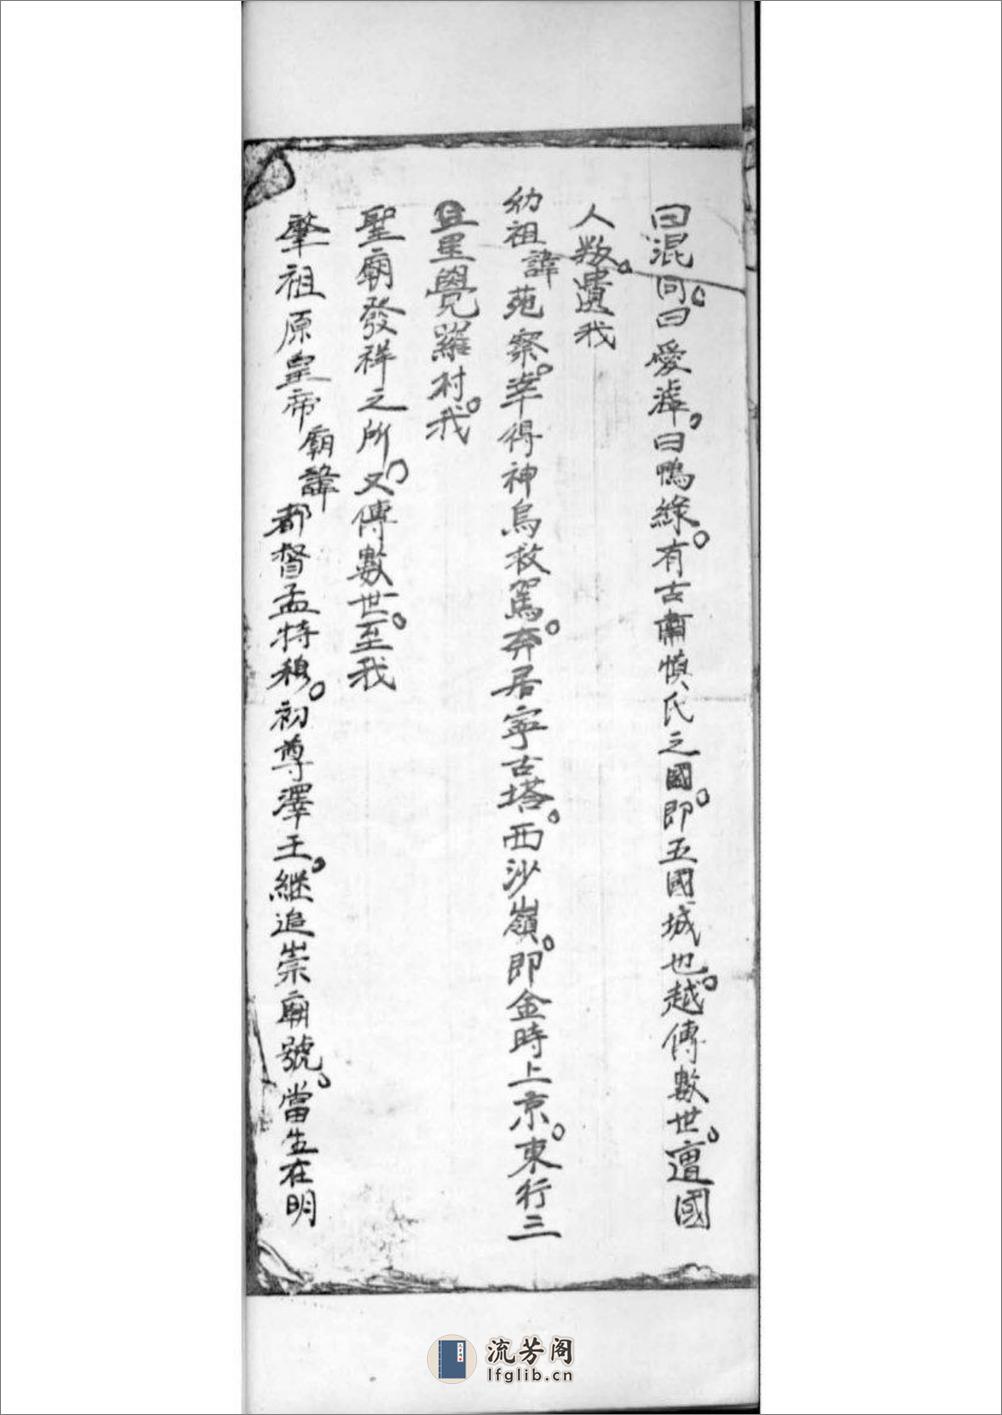 曰混同。曰愛滹。曰鴨綠。有古肅慎氏之國。即五國城也。越傳數世。遭國
人叛。遺我
幼祖諱范察。幸得神烏救駕。奔居寧古塔。西沙嶺。即金時上京。東行三
里覺羅村。我
聖廟發祥之所。又傳數世。至我
肇祖原皇帝廟諱都督孟特穆。初尊澤王。繼追崇廟號。當生在明
流芳阁
lfglib.cn